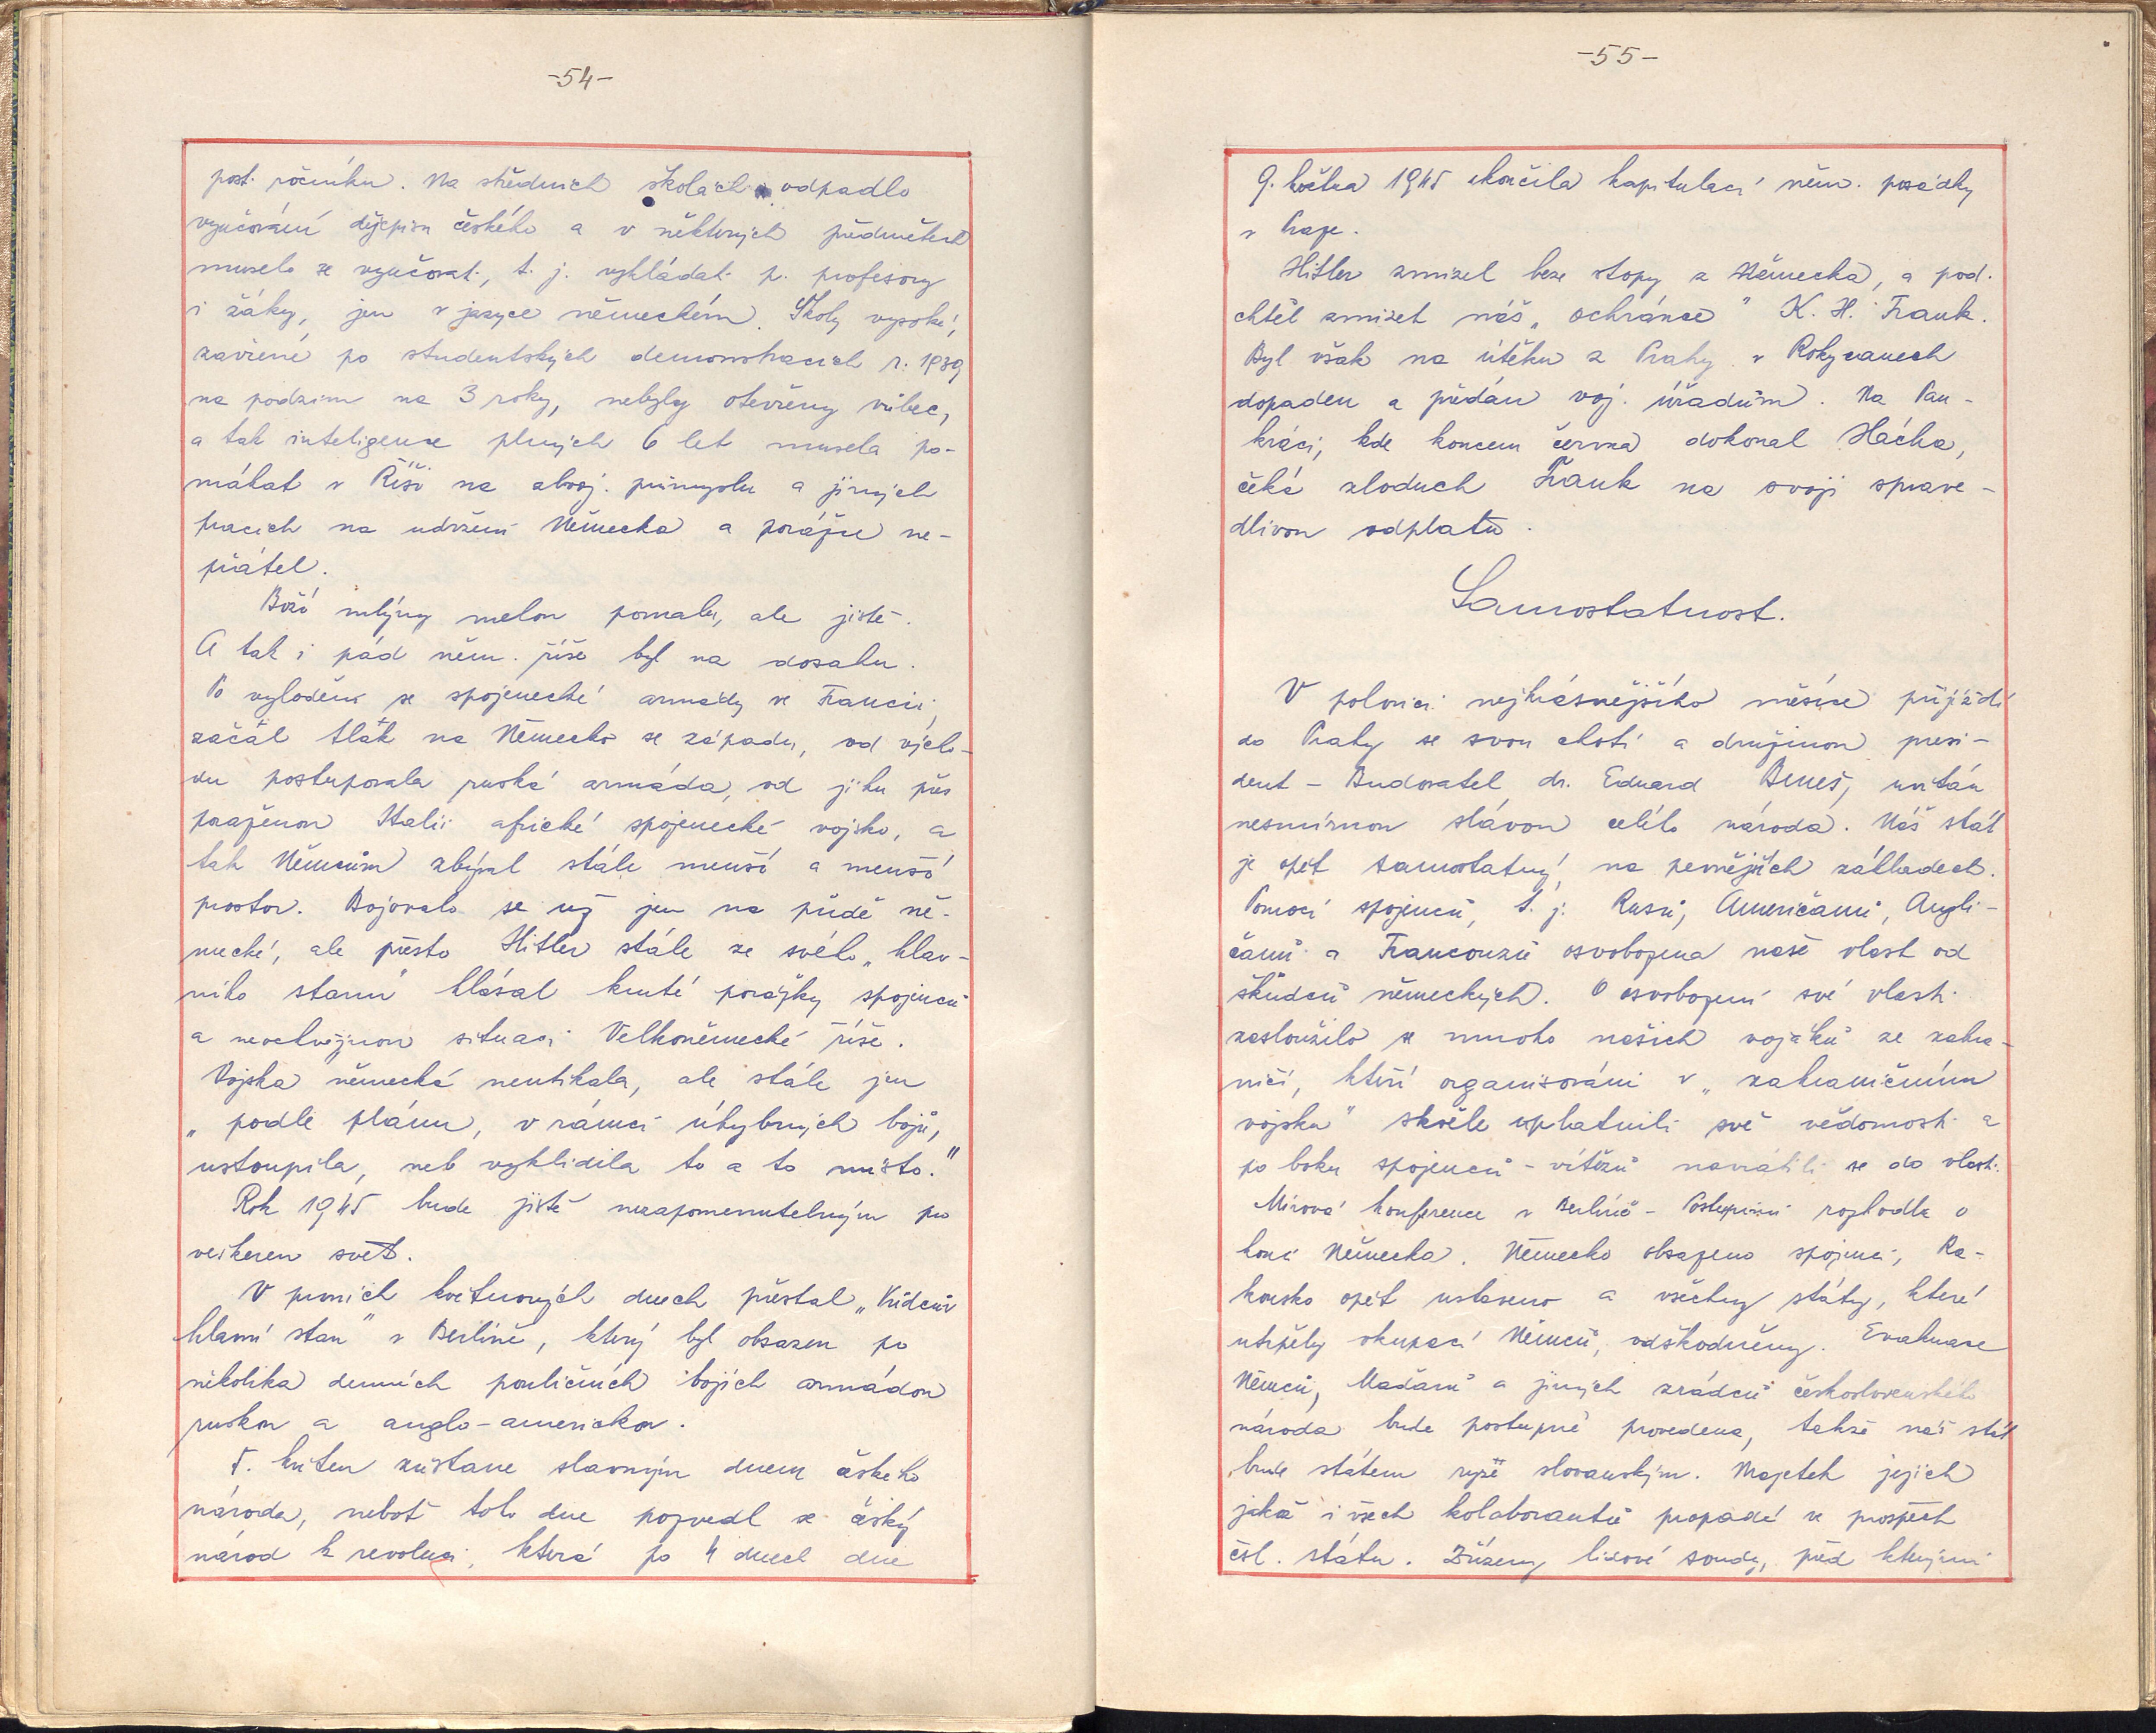 -54-
post. ročníku. Na středních školách odpadlo
vyučování dějepisu českého a v některých předmětech
muselo se vyučovat, t. j. vykládat p. profesory
i žáky, jen v jazyce německém. Školy vysoké,
zavřené po studentských demonstracích r. 1939
na podzim na 3 roky, nebyly otevřeny vůbec,
a tak inteligence plných 6 let musela po-
máhat v Říši na zbroj. průmyslu a jiných
pracích na udržení Německa a porážce ne-
přátel.
Boží mlýny melou pomalu, ale jistě.
A tak i pád něm. říše byl na dosahu.
Po vylodění se spojenecké armády ve Francii,
začal tlak na Německo se západu, od výcho-
du postupovala ruská armáda, od jihu přes
poraženou Italii africké spojenecké vojsko, a
tak Němcům zbýval stále menší a menší
prostor. Bojovalo se už jen na půdě ně-
mecké, ale přesto Hitler stále ze svého „hlav-
ního stanu" hlásal kruté porážky spojenců
a neochvějnou situaci Velkoněmecké říše.
Vojska německá neutíkala, ale stále jen
„podle plánu, v rámci úhybných bojů,
ustoupila, neb vyklidila to a to místo."
Rok 1945 bude jistě nezapomenutelným pro
veškeren svět.
V prvních květnových dnech přestal „Vůdcův
hlavní stan" v Berlíně, který byl obsazen po
několika denních pouličních bojích armádou
ruskou a anglo-americkou.
5. květen zůstane slavným dnem českého
národa, neboť toho dne pozvedl se český
národ k revoluci, která po 4 dnech dne
-55-
9. května 1945 skončila kapitulací něm. posádky
v Praze.
Hitler zmizel beze stopy z Německa, a pod.
chtěl zmizet náš „ochránce" K. H. Frank.
Byl však na útěku z Prahy v Rokycanech
dopaden a předán voj. úřadům. Na Pan-
kráci, kde koncem června dokonal Hácha,
čeká zloduch Frank na svoji sprave-
dlivou odplatu.
Samostatnost.
V polovici nejkrásnějšího měsíce přijíždí
do Prahy se svou chotí a družinou presi-
dent - Budovatel dr. Eduard Beneš, uvítán
nesmírnou slávou celého národa. Náš stát
je opět samostatný, na pevnějších základech.
Pomocí spojenců, t. j. Rusů, Američanů, Angli-
čanů a Francouzů osvobozena naše vlast od
škůdců německých. O osvobození své vlasti
zasloužilo se mnoho našich vojáků ze zahra-
ničí, kteří organisováni v „zahraničním
vojsku" skvěle uplatnili své vědomosti a
po boku spojenců - vítězů navrátili se do vlasti.
Mírová konference v Berlíně - Postupimi rozhodla o
konci Německa. Německo obsazeno spojenci, Ra-
kousko opět ustaveno a všechny státy, které
utrpěly okupací Němců, odškodněny. Evakuace
Němců, Maďarů a jiných zrádců československého
národa bude postupně provedena, takže náš stát
bude státem ryze slovanským. Majetek jejich
jakož i všech kolaborantů propadá ve prospěch
čsl. státu. Zřízeny lidové soudy, před kterými